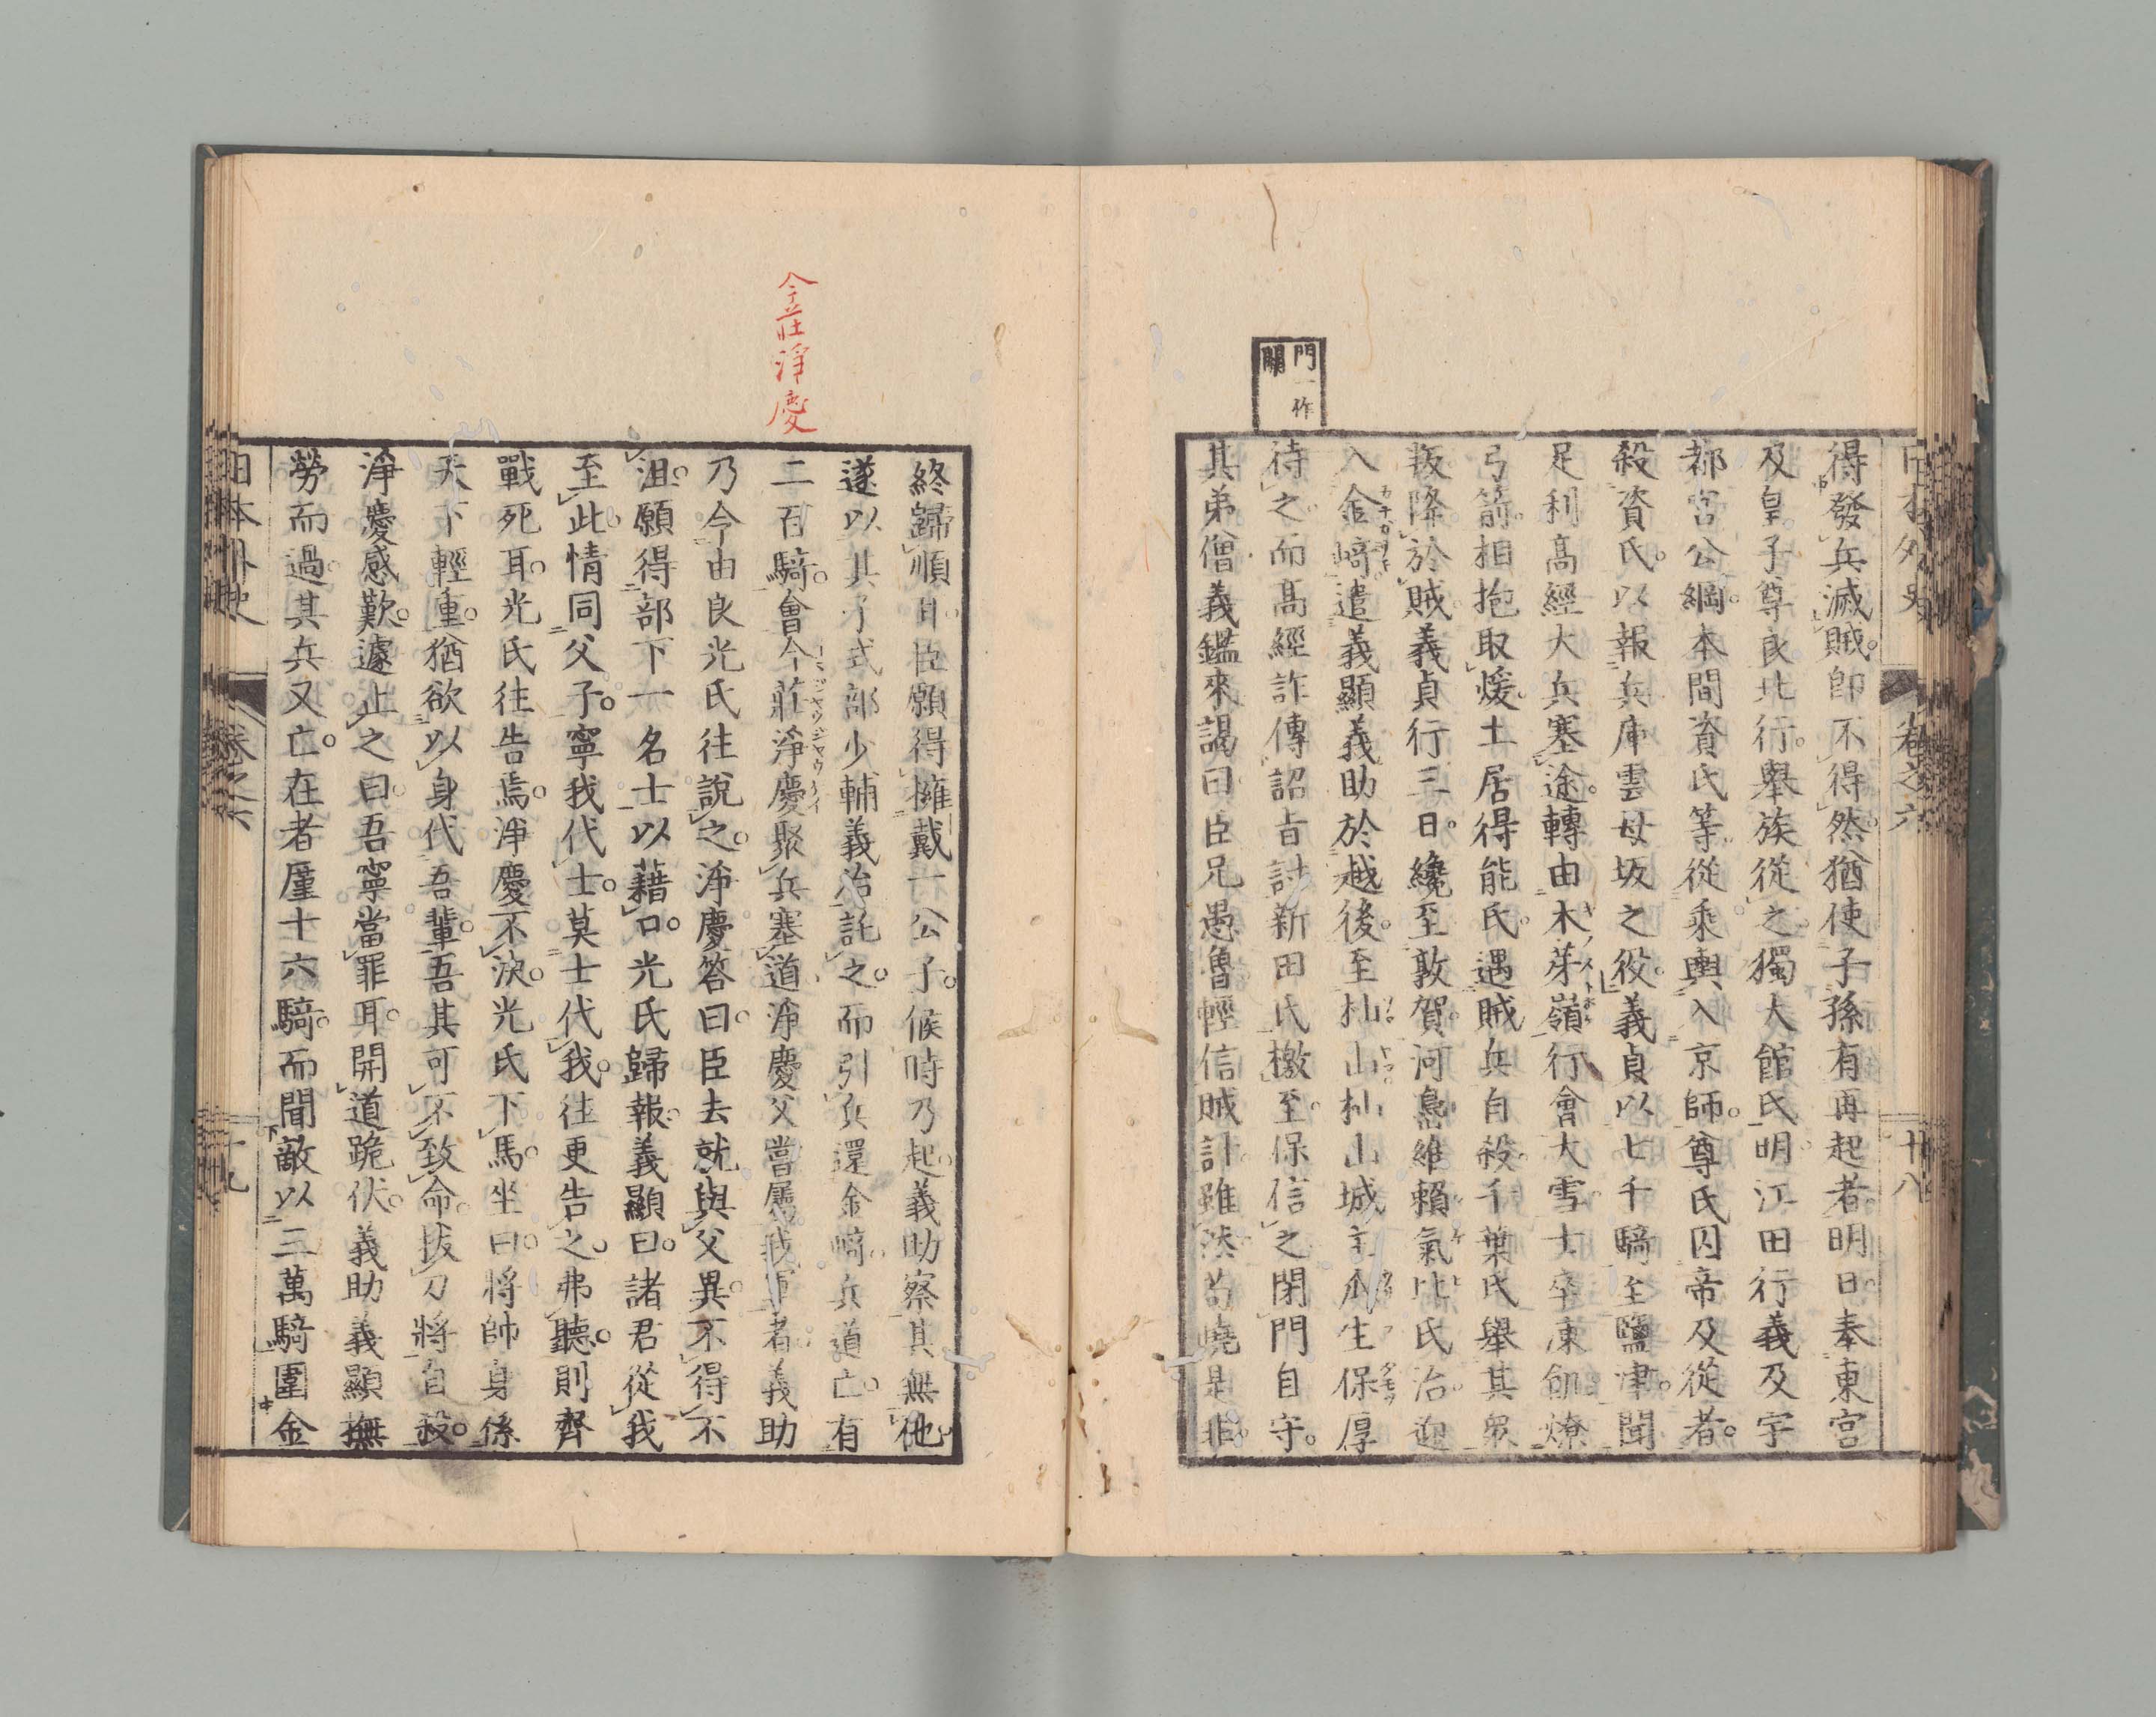 日本外史 卷之六 廿八
門一作
關
得發兵滅賊。卽不得然。猶使子孫有再起者。明日奉東宮
及皇子尊良北行。舉族從之。獨大館氏明江田行義及宇
都宮公綱。本間資氏等。從乘輿入京師。尊氏囚帝及從者。
殺資氏。以報兵庫雲母坂之役。義貞以七千騎至鹽津。聞
足利高經大兵塞途。轉由木芽嶺行。會大雪。士卒凍飢。燎
弓箭。相抱取煖。土居得能氏。遇賊兵自殺。千葉氏舉其衆
叛降於賊。義貞行三日。纔至敦賀。河島維賴氣比氏治迎
入金﨑。遣義顯義助於越後。至杣山。杣山城主瓜生保厚
待之。而高經詐傳詔旨討新田氏。檄至。保信之。閉門自守。
其弟僧義鑑來謁曰。臣兄愚魯輕信賊計。雖然苟曉是非。
今莊淨慶
終歸順耳。臣願得擁戴一公子。候時乃起。義助察其無他。
遂以其子式部少輔義治託之。而引兵還金﨑。兵道亡。有
二百騎。會今莊淨慶聚兵塞道。淨慶父嘗屬我軍者。義助
乃令由良光氏往說之。淨慶答曰。臣去就與父異。不得不
沮。願得部下一名士以藉口。光氏歸報。義顯曰。諸君從我
至此。情同父子。寧我代士。莫士代我。往更告之。弗聽則齊
戰死耳。光氏往告焉。淨慶不決。光氏下馬。坐曰。將帥身係
天下輕重。猶欲以身代吾輩。吾其可不致命。拔刀將自殺。
淨慶感歎。遽止之曰。吾寧當罪耳。開道跪伏。義助義顯撫
勞而過。其兵又亡。在者厪十六騎。而聞敵以三萬騎圍金
日本外史 卷之六 十九